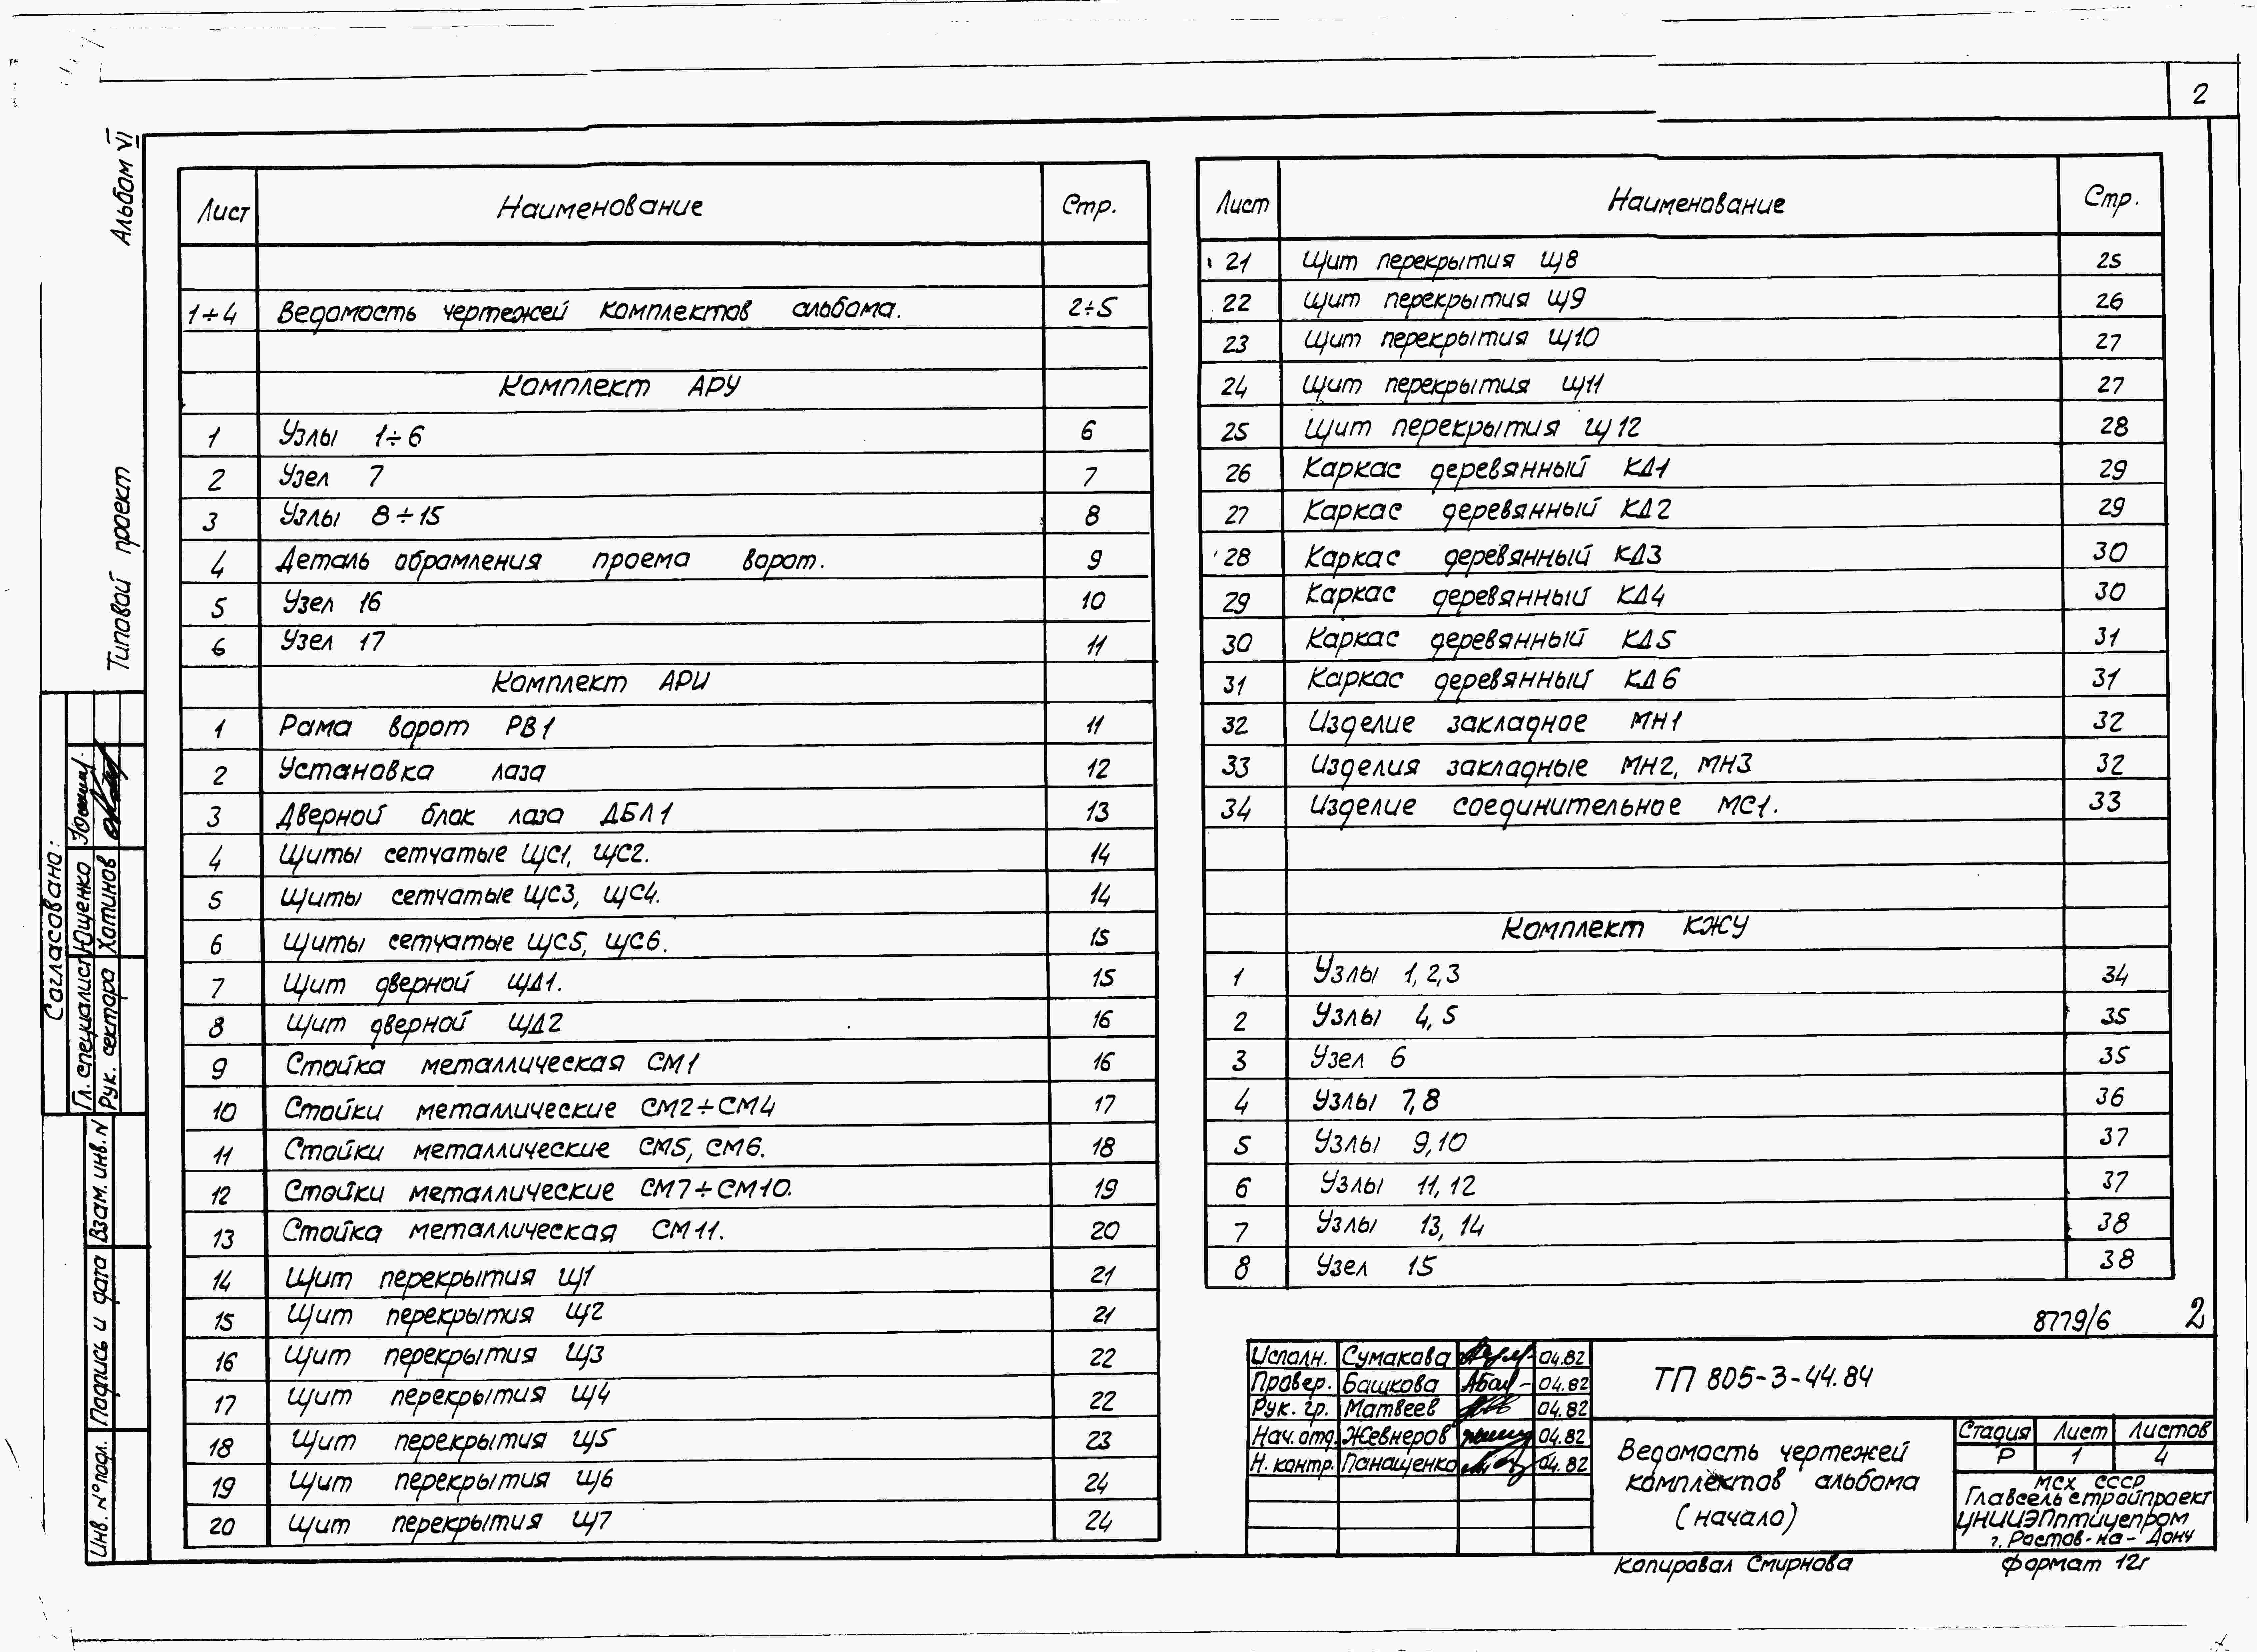 2
Альбом VI
Типовой проект
Лист Наименование Стр.
1÷4 Ведомость чертежей комплектов альбома. 2÷5
Комплект АРУ
1 Узлы 1÷6 6
2 Узел 7 7
3 Узлы 8÷15 8
4 Деталь обрамления проема ворот. 9
5 Узел 16 10
6 Узел 17 11
Комплект АРИ
1 Рама ворот РВ1 11
2 Установка лаза 12
3 Дверной блок лаза ДБЛ1 13
4 Щиты сетчатые ЩС1, ЩС2. 14
5 Щиты сетчатые ЩС3, ЩС4. 14
6 Щиты сетчатые ЩС5, ЩС6. 15
7 Щит дверной ЩД1. 15
8 Щит дверной ЩД2 16
9 Стойка металлическая СМ1 16
10 Стойки металлические СМ2÷СМ4 17
11 Стойки металлические СМ5, СМ6. 18
12 Стойки металлические СМ7÷СМ10. 19
13 Стойка металлическая СМ11. 20
14 Щит перекрытия Щ1 21
15 Щит перекрытия Щ2 21
16 Щит перекрытия Щ3 22
17 Щит перекрытия Щ4 22
18 Щит перекрытия Щ5 23
19 Щит перекрытия Щ6 24
20 Щит перекрытия Щ7 24
Лист Наименование Стр.
21 Щит перекрытия Щ8 25
22 Щит перекрытия Щ9 26
23 Щит перекрытия Щ10 27
24 Щит перекрытия Щ11 27
25 Щит перекрытия Щ12 28
26 Каркас деревянный КД1 29
27 Каркас деревянный КД2 29
28 Каркас деревянный КД3 30
29 Каркас деревянный КД4 30
30 Каркас деревянный КД5 31
31 Каркас деревянный КД6 31
32 Изделие закладное МН1 32
33 Изделия закладные МН2, МН3 32
34 Изделие соединительное МС1. 33
Комплект КЖУ
1 Узлы 1,2,3 34
2 Узлы 4,5 35
3 Узел 6 35
4 Узлы 7,8 36
5 Узлы 9,10 37
6 Узлы 11,12 37
7 Узлы 13,14 38
8 Узел 15 38
8779/6 2
Согласовано:
Гл. специалист Ющенко
Рук. сектора Хотинов
Взам. инв. N
Подпись и дата
Инв. № подл.
Исполн. Сумакова 04.82
Провер. Башкова 04.82
Рук. гр. Матвеев 04.82
Нач. отд. Жевнеров 04.82
Н. контр. Панащенко 04.82
ТП 805-3-44.84
Ведомость чертежей
комплектов альбома
(начало)
Стадия Лист Листов
Р 1 4
МСХ СССР
Главсельстройпроект
ЦНИИЭПптицепром
г. Ростов-на-Дону
Копировал Смирнова Формат 12г